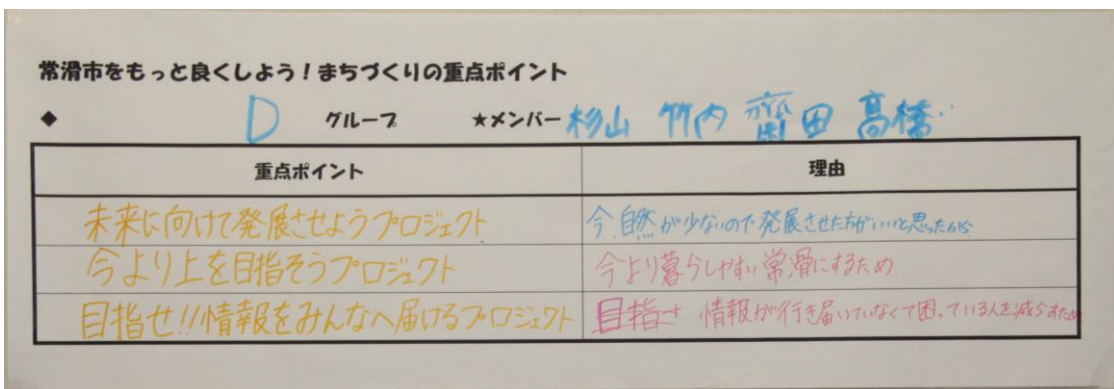 常滑市をもっと良くしよう！まちづくりの重点ポイント
◆ D グループ ★メンバー 杉山 竹内 齋田 高橋
重点ポイント 理由
未来に向けて発展させようプロジェクト 今、自然が少ないので発展させた方がいいと思ったから
今より上を目指そうプロジェクト 今より暮らしやすい常滑にするため
目指せ!!情報をみんなへ届けるプロジェクト 目指せ 情報が行き届いていなくて困っている人を減らすため